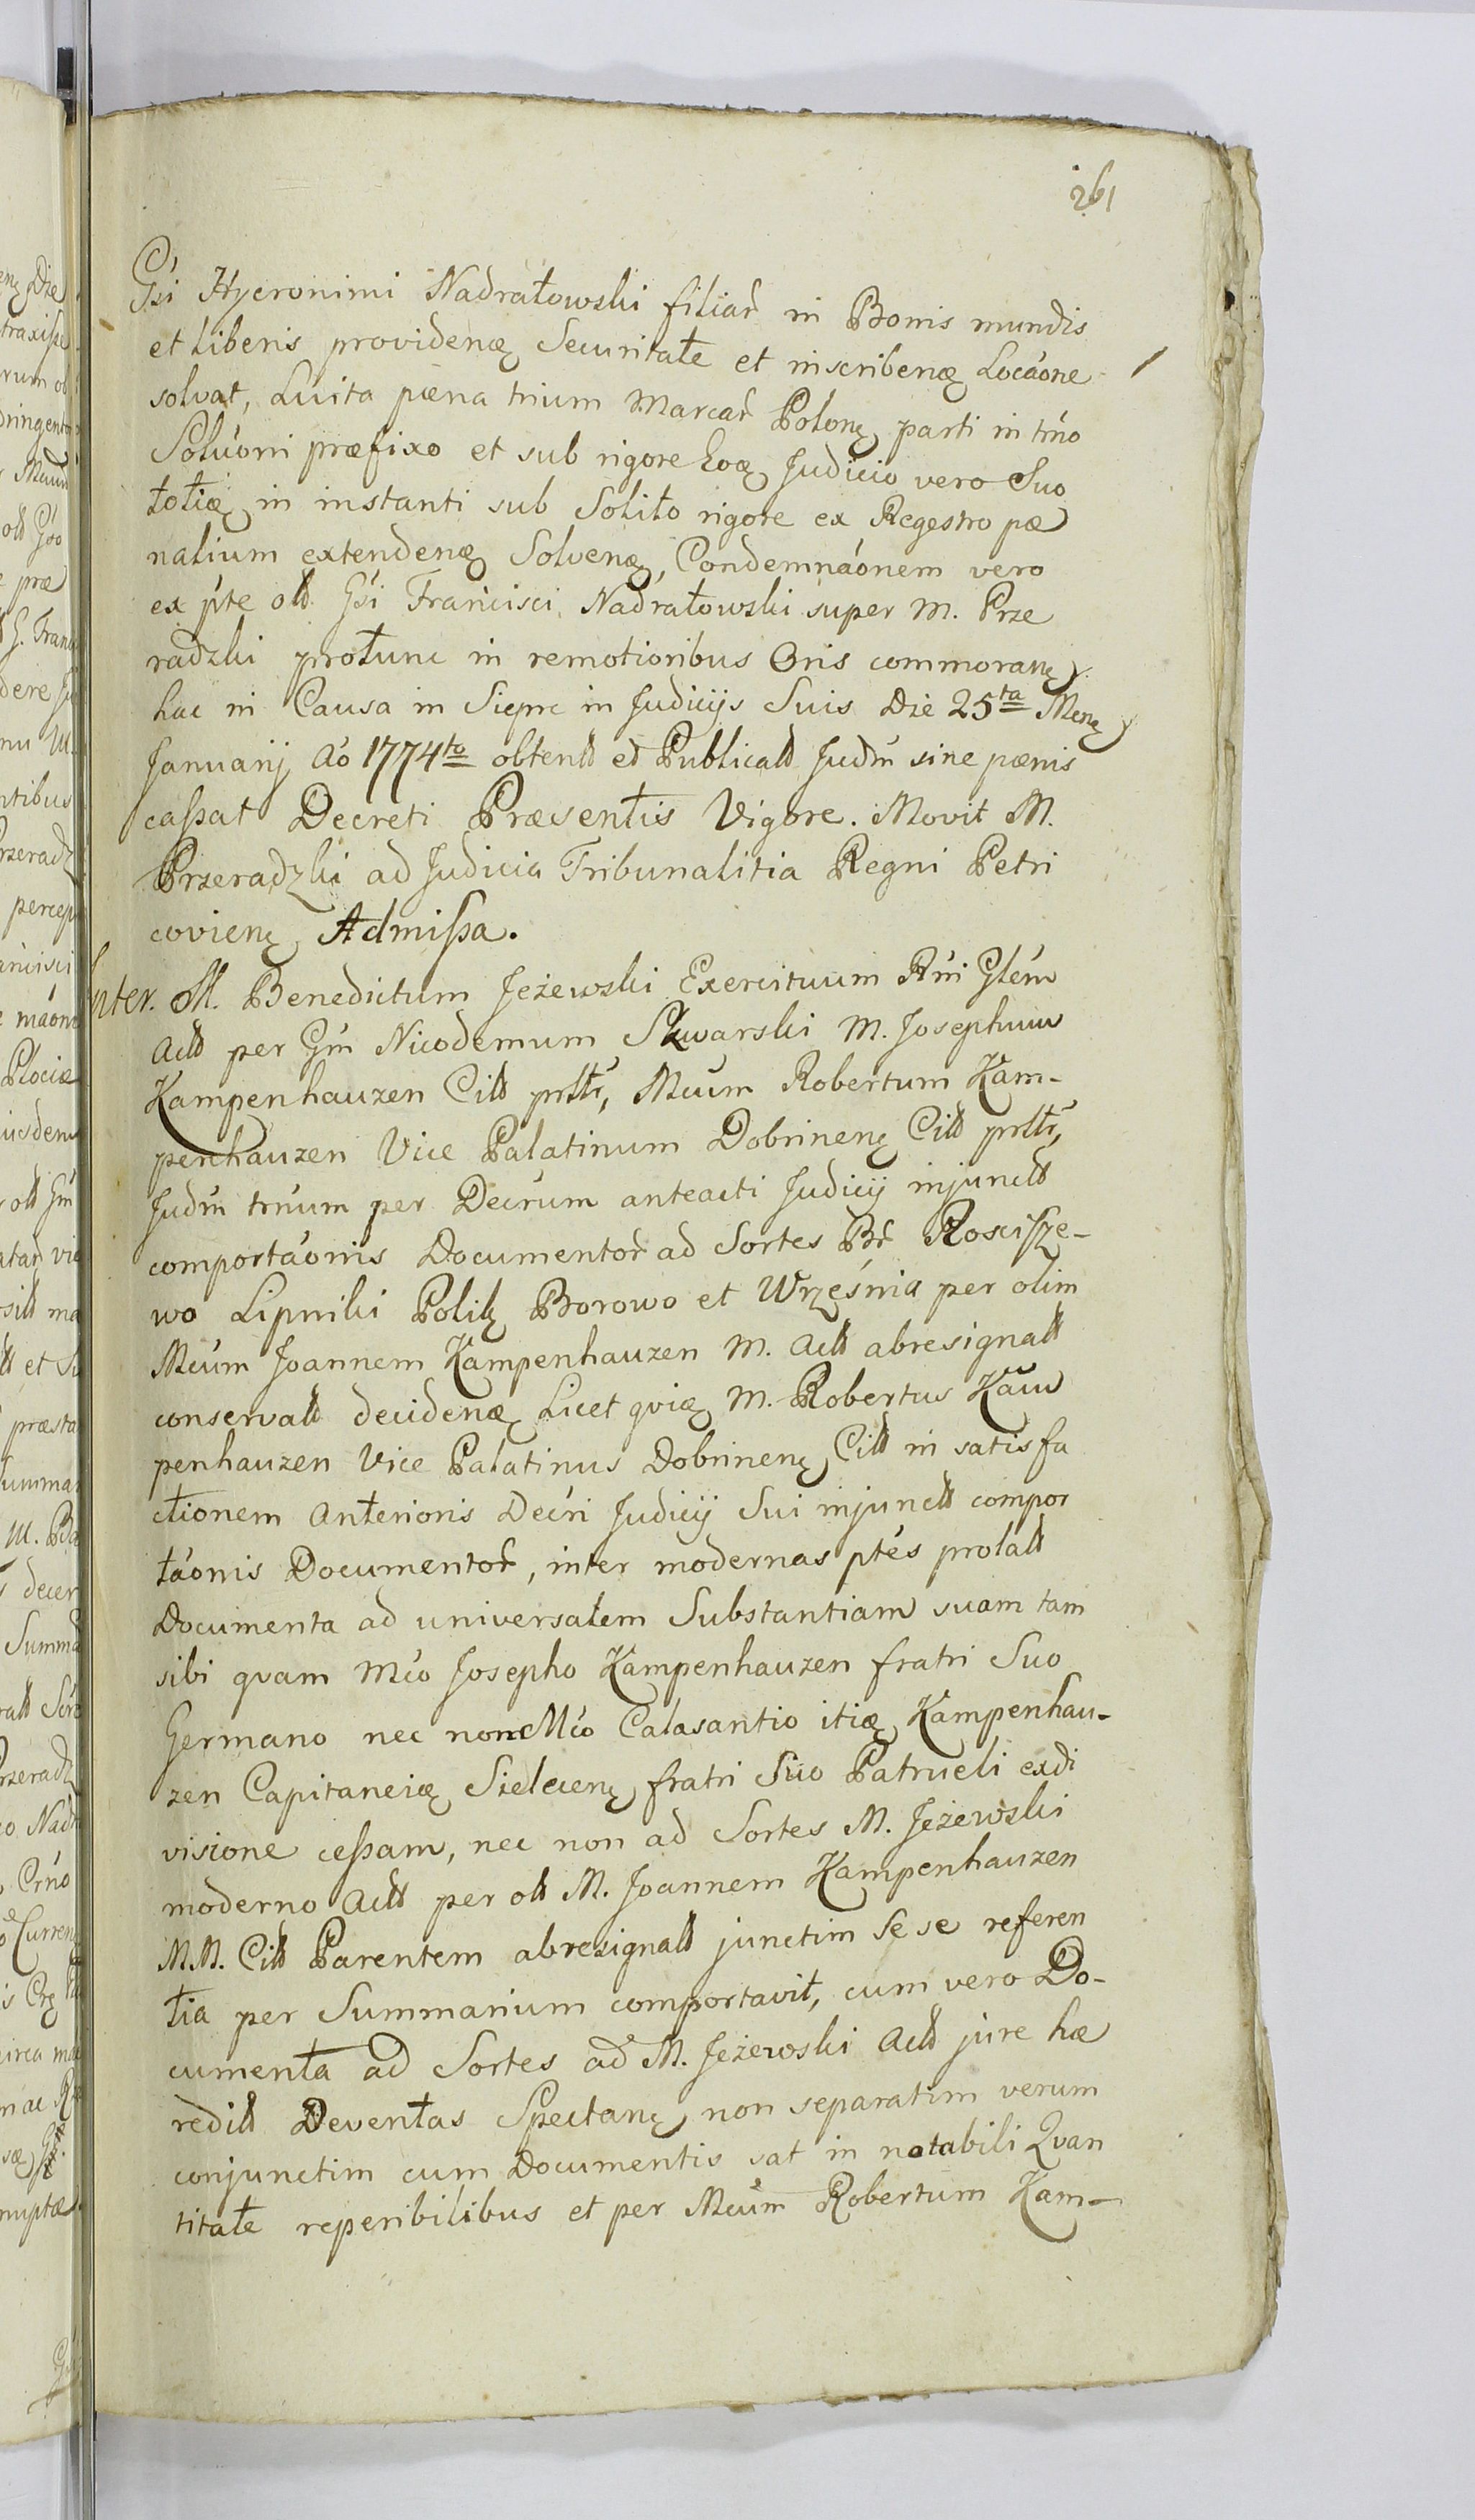 261
Gsi Hyeronimi Nadratowski filiar in Bonis mundis
et liberis providenę Securitate et inscribenę Locáone
solvat, Luita pæna trium Marcar Polonę parti in trńo
Solúoni præfixo et sub rigore Judicio vero Suo
totię in instanti sub Solito rigore ex Regestro pæ
nalium extendenę Solvenę, Condemnáonem vero
ex pte old Gsi Francisci Nadratowski super M. Prze
radzki protunc in remotioribus Oris commoranę
hac in Causa in Siepre in Judicijs Suis Die 25ta Menę
Januarij Ao 1774to obtentt et Publicatt Judm sine pænis
caßat Decreti Præsentis Vigore. Movit M.
Przeradzki ad Judicia Tribunalitia Regni Petri
covienę Admißa.
Inter M. Benedictum Jeżewski Exercituum Rńi Glem
Actt per Gm Nicodemum Skwarski M. Josephum
Kampenhauzen Citt prltr, Mcum Robertum Kam-
penhauzen Vice Palatinum Dobrinenę Citt prltr,
Judm trńum per Decrum anteacti Judicij injunctt
comportáonis Documentor ad Sortes Br Roscisze-
wo Lipniki Polik Borowo et Września per olim
Mcum Joannem Kampenhauzen M. Actt abresignatt
conservatt decidenę Licet qvię M. Robertus Kam
penhauzen Vice Palatinus Dobrinenę Citt in satisfa
ctionem Anterioris Decri Judicij Sui injunctt compor
táonis Documentor, inter modernas ptes prolatt
Documenta ad universalem Substantiam suam tam
sibi qvam Mco Josepho Kampenhauzen fratri Suo
Germano nec non Mco Calasantio itię Kampenhau-
zen Capitaneię Sielecenę fratri Suo Patrueli exdi
visione ceßam, nec non ad Sortes M. Jeżewski
moderno Actt per ott M. Joannem Kampenhauzen
M.M. Citt Parentem abresignatt junctim Se se referen
tia per Summarium comportavit, cum vero Do-
cumenta ad Sortes ad M. Jeżewski Actt jure hæ
reditt Deventas Spectanę non separatim verum
conjunctim cum Documentis sat in notabili Qvan
titate reperibilibus et per Mcum Robertum Kam-